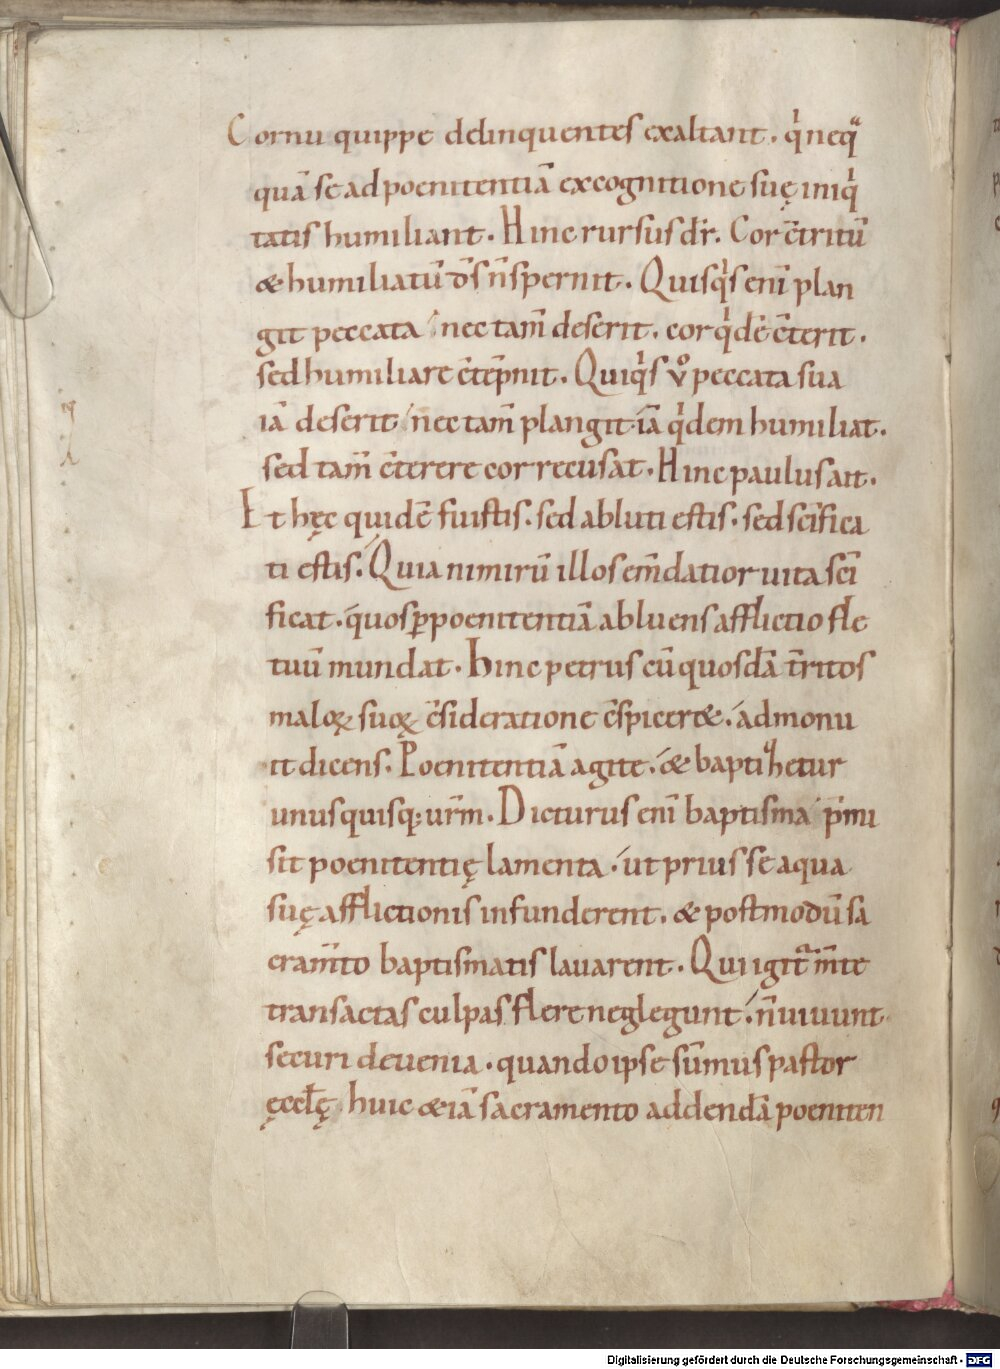 Cornu quippe delinquentes exaltant. qͥ neqͣ
quā se ad poenitentiā ex cognitione suę iniqͥ
tatis humiliant. Hinc rursus dr̄. Cor c̄tritū
& humiliatū d̄s n̄ spernit. Quisqͥs enī plan
git peccata nec tam̄ deserit. cor qͥdē c̄terit.
sed humiliare c̄tēpnit. Quiqͥs v̊ peccata sua
iā deserit nec tam̄ plangit iā qͥdem humiliat.
sed tam̄ c̄terere cor recusat. Hinc paulus ait.
Et hęc quidē fuistis. sed abluti estis. sed sc̄ifica
ti estis. Quia nimirū illos em̄datior uita sc̄i
ficat. quos ꝑ poenitentiā abluens afflictio fle
tuū mundat. hinc petrus cū quosdā t̄rritos
maloꝝ suoꝝ c̄sideratione c̄spicer&. admonu
it dicens. Poenitentiā agite. & baptizetur
unusquisq; ur̄m. Dicturus enī baptisma p̄mi
sit poenitentię lamenta. ut prius se aqua
suę afflictionis infunderent. & postmodū sa
cram̄to baptismatis lauarent. Qui igit᷑ m̄te
transactas culpas flere neglegunt. n̄ uiuunt
securi de uenia. quando ipse sūmus pastor
ęccłę huic &iā sacramento addendā poeniten
Digitalisierung gefördert durch die Deutsche Forschungsgemeinschaft - DFG